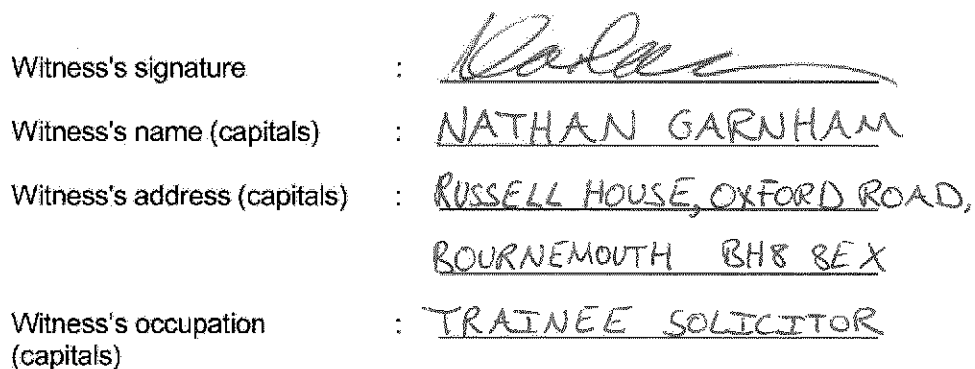 Witness's signature :
Witness's name (capitals) : NATHAN GARNHAM
Witness's address (capitals) : RUSSELL HOUSE, OXFORD ROAD,
BOURNEMOUTH BH8 8EX
Witness's occupation : TRAINEE SOLICITOR
(capitals)